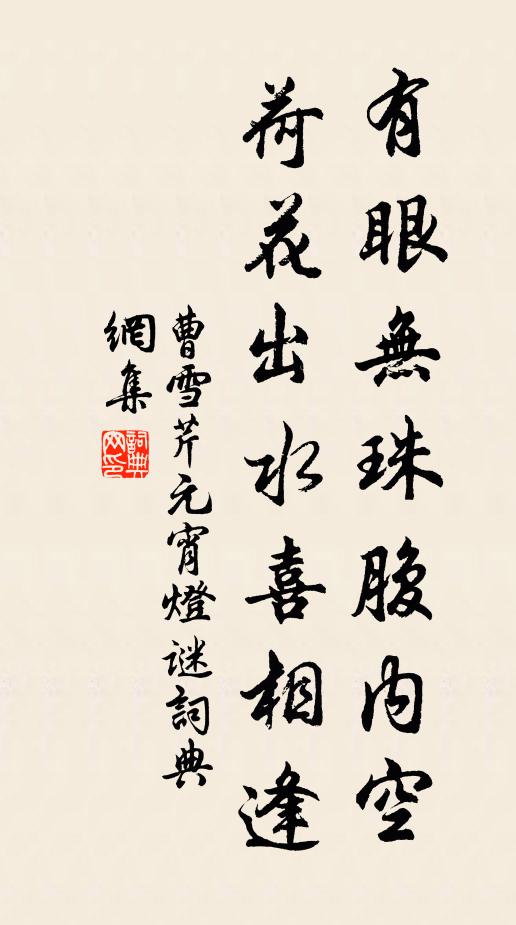 有眼無珠腹內空
荷花出水喜相逢
曹雪芹元宵燈谜詞典
網集
詞典
网印